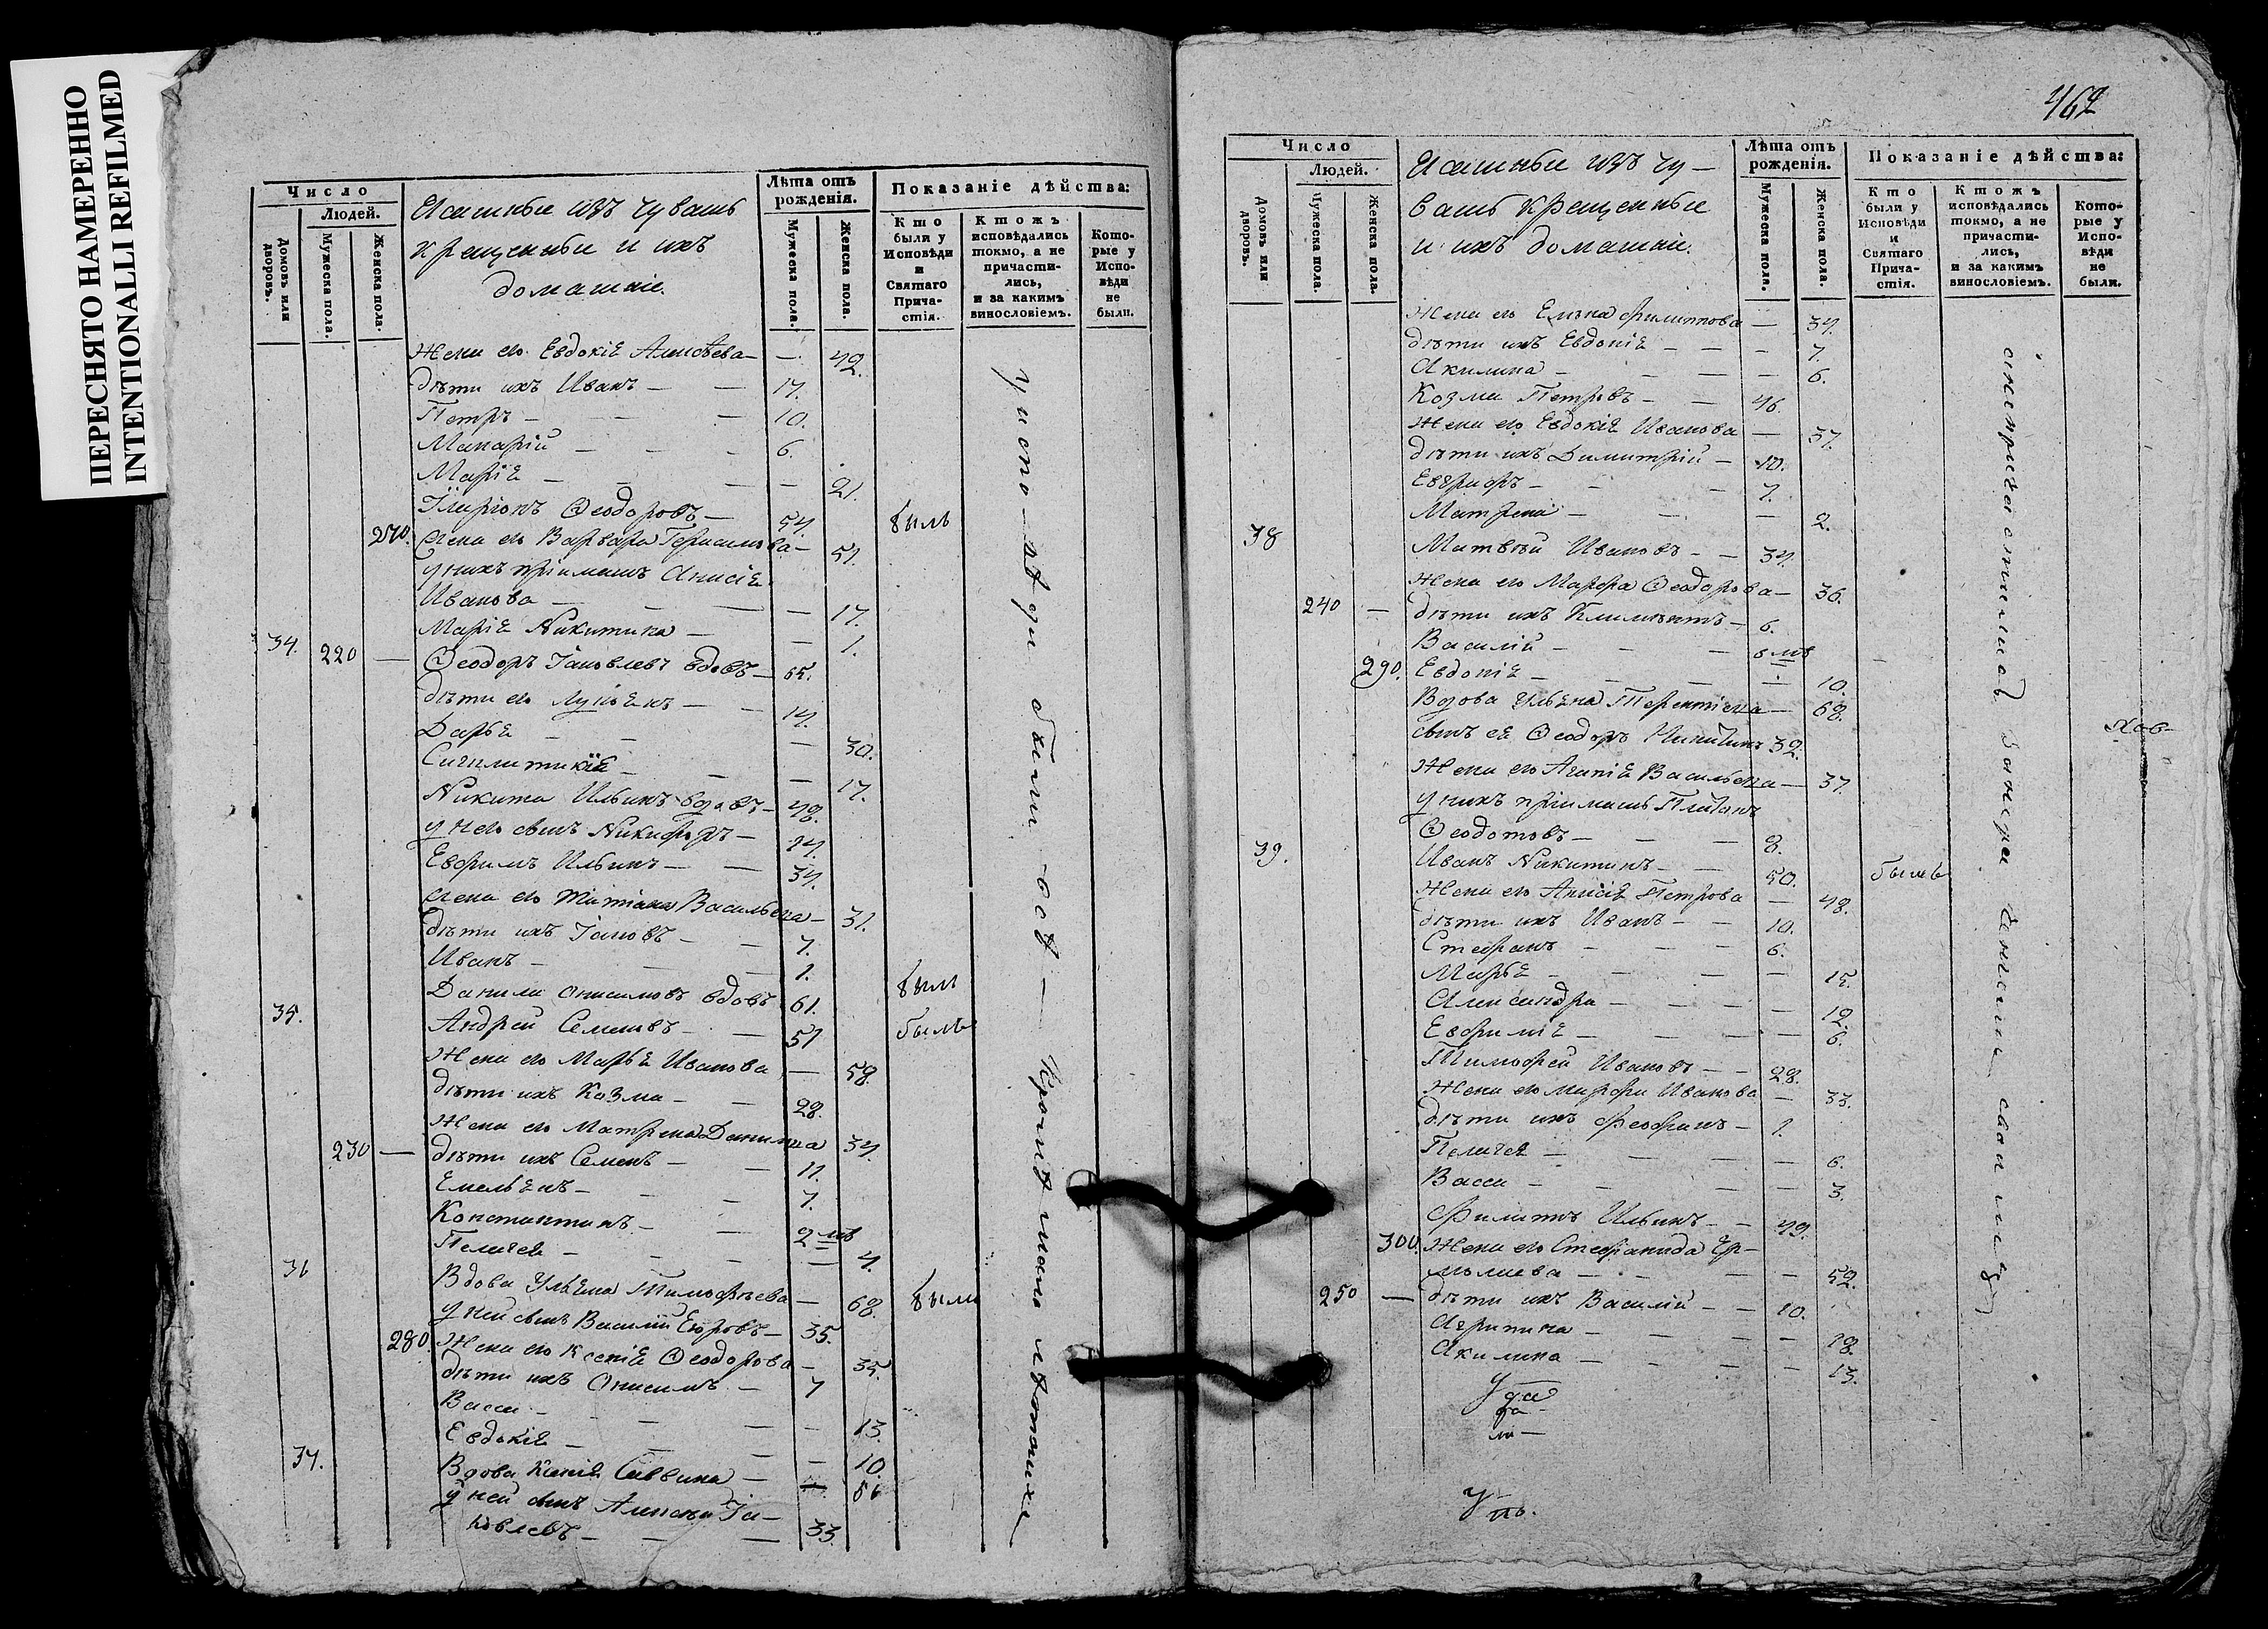 ПЕРЕСНЯТО НАМЕРЕННО
INTENTIONALLI REFILMED
Число
Людей.
Домовъ или дворовъ.
Мужеска пола.
Женска пола.
Ясашные изъ чувашъ
крещеные и ихъ
домашніе.
Лѣта отъ рожденія.
Мужеска пола.
Женска пола.
Показаніе дѣйства:
Кто были у Исповѣди и Святаго Причастія.
Ктожъ исповѣдались токмо, а не причастились, и за какимъ винословіемъ.
Которые у Исповѣди не были.
Жена его Евдокія Алексѣева — 42.
дѣти ихъ Иванъ — 17.
Петръ — 10.
Макарій — 6.
Марія — 21.
Иларіонъ Ѳеодоровъ — 54. былъ
270. Жена его Варвара Герасимова — 51.
у нихъ пріимышъ Анисія
Иванова — 17.
Марія Никитина — 1.
34. 220 — Ѳеодоръ Іаковлевъ вдовъ — 65.
дѣти его Лукьянъ — 14.
Дарья — 30.
Сигклитикія — 17.
Никита Ильинъ вдовъ — 48.
у него сынъ Никифоръ — 24.
Ефимъ Ильинъ — 34.
Жена его Татіана Васильева — 31.
дѣти ихъ Іаковъ — 7.
Иванъ — 1.
Данила Онисимовъ вдовъ 61. былъ
35. Андрей Семеновъ — 51 былъ
Жена его Марья Иванова — 58.
дѣти ихъ Козма — 28.
Жена его Матрена Данилова 34.
230 — дѣти ихъ Семенъ — 11.
Емельянъ — 7.
Константинъ — 2 мѣ
Пелагея — 4.
36 Вдова Ульяна Тимофѣева — 68. были
у ней сынъ Василій Егоровъ — 35.
280 Жена его Ксенія Ѳеодорова — 35.
дѣти ихъ Онисимъ — 7
Васса — 13.
Евдокія — 10.
37. Вдова Ксенія Саввина — 56
у ней сынъ Алексѣй Іа-
ковлевъ — 33.
462
Число
Людей.
Домовъ или дворовъ.
Мужеска пола.
Женска пола.
Ясашные изъ чу-
вашъ крещеные
и ихъ домашніе.
Лѣта отъ рожденія.
Мужеска пола.
Женска пола.
Показаніе дѣйства:
Кто были у Исповѣди и Святаго Причастія.
Ктожъ исповѣдались токмо, а не причастились, и за какимъ винословіемъ.
Которые у Исповѣди не были.
Жена его Елена Филиппова — 34.
дѣти ихъ Евдокія — 7.
Акилина — 6.
Козма Петровъ — 46.
Жена его Евдокія Иванова — 37.
дѣти ихъ Димитрій — 10.
Евграфъ — 7.
Матрена — 2.
38 Матвѣй Ивановъ — 34.
Жена его Марфа Ѳеодорова — 36.
240 — дѣти ихъ Климентъ — 6.
Василій — 8 мѣ
290. Евдокія — 10.
Вдова Ульяна Терентіева — 68.
сынъ ея Ѳеодоръ Никитинъ 32.
Жена его Агапія Васильева — 37.
у нихъ пріимышъ Платонъ
Ѳеодотовъ — 8.
39. Иванъ Никитинъ — 50. былъ
Жена его Анисія Петрова — 48.
дѣти ихъ Иванъ — 10.
Стефанъ — 6.
Марья — 15.
Александра — 12.
Евфимія — 6.
Тимофей Ивановъ — 28.
Жена его Марфа Иванова — 33.
дѣти ихъ Феофанъ — 1.
Пелагея — 6.
Васса — 3.
Филиппъ Ильинъ — 49.
300. Жена его Стефанида Ер-
молаева — 52.
250 — дѣти ихъ Василій — 10.
Агрипина — 18.
Акилина — 13.